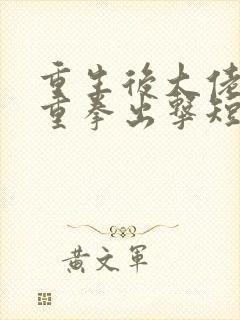 重生後大佬
重拳出擊短
黃文軍